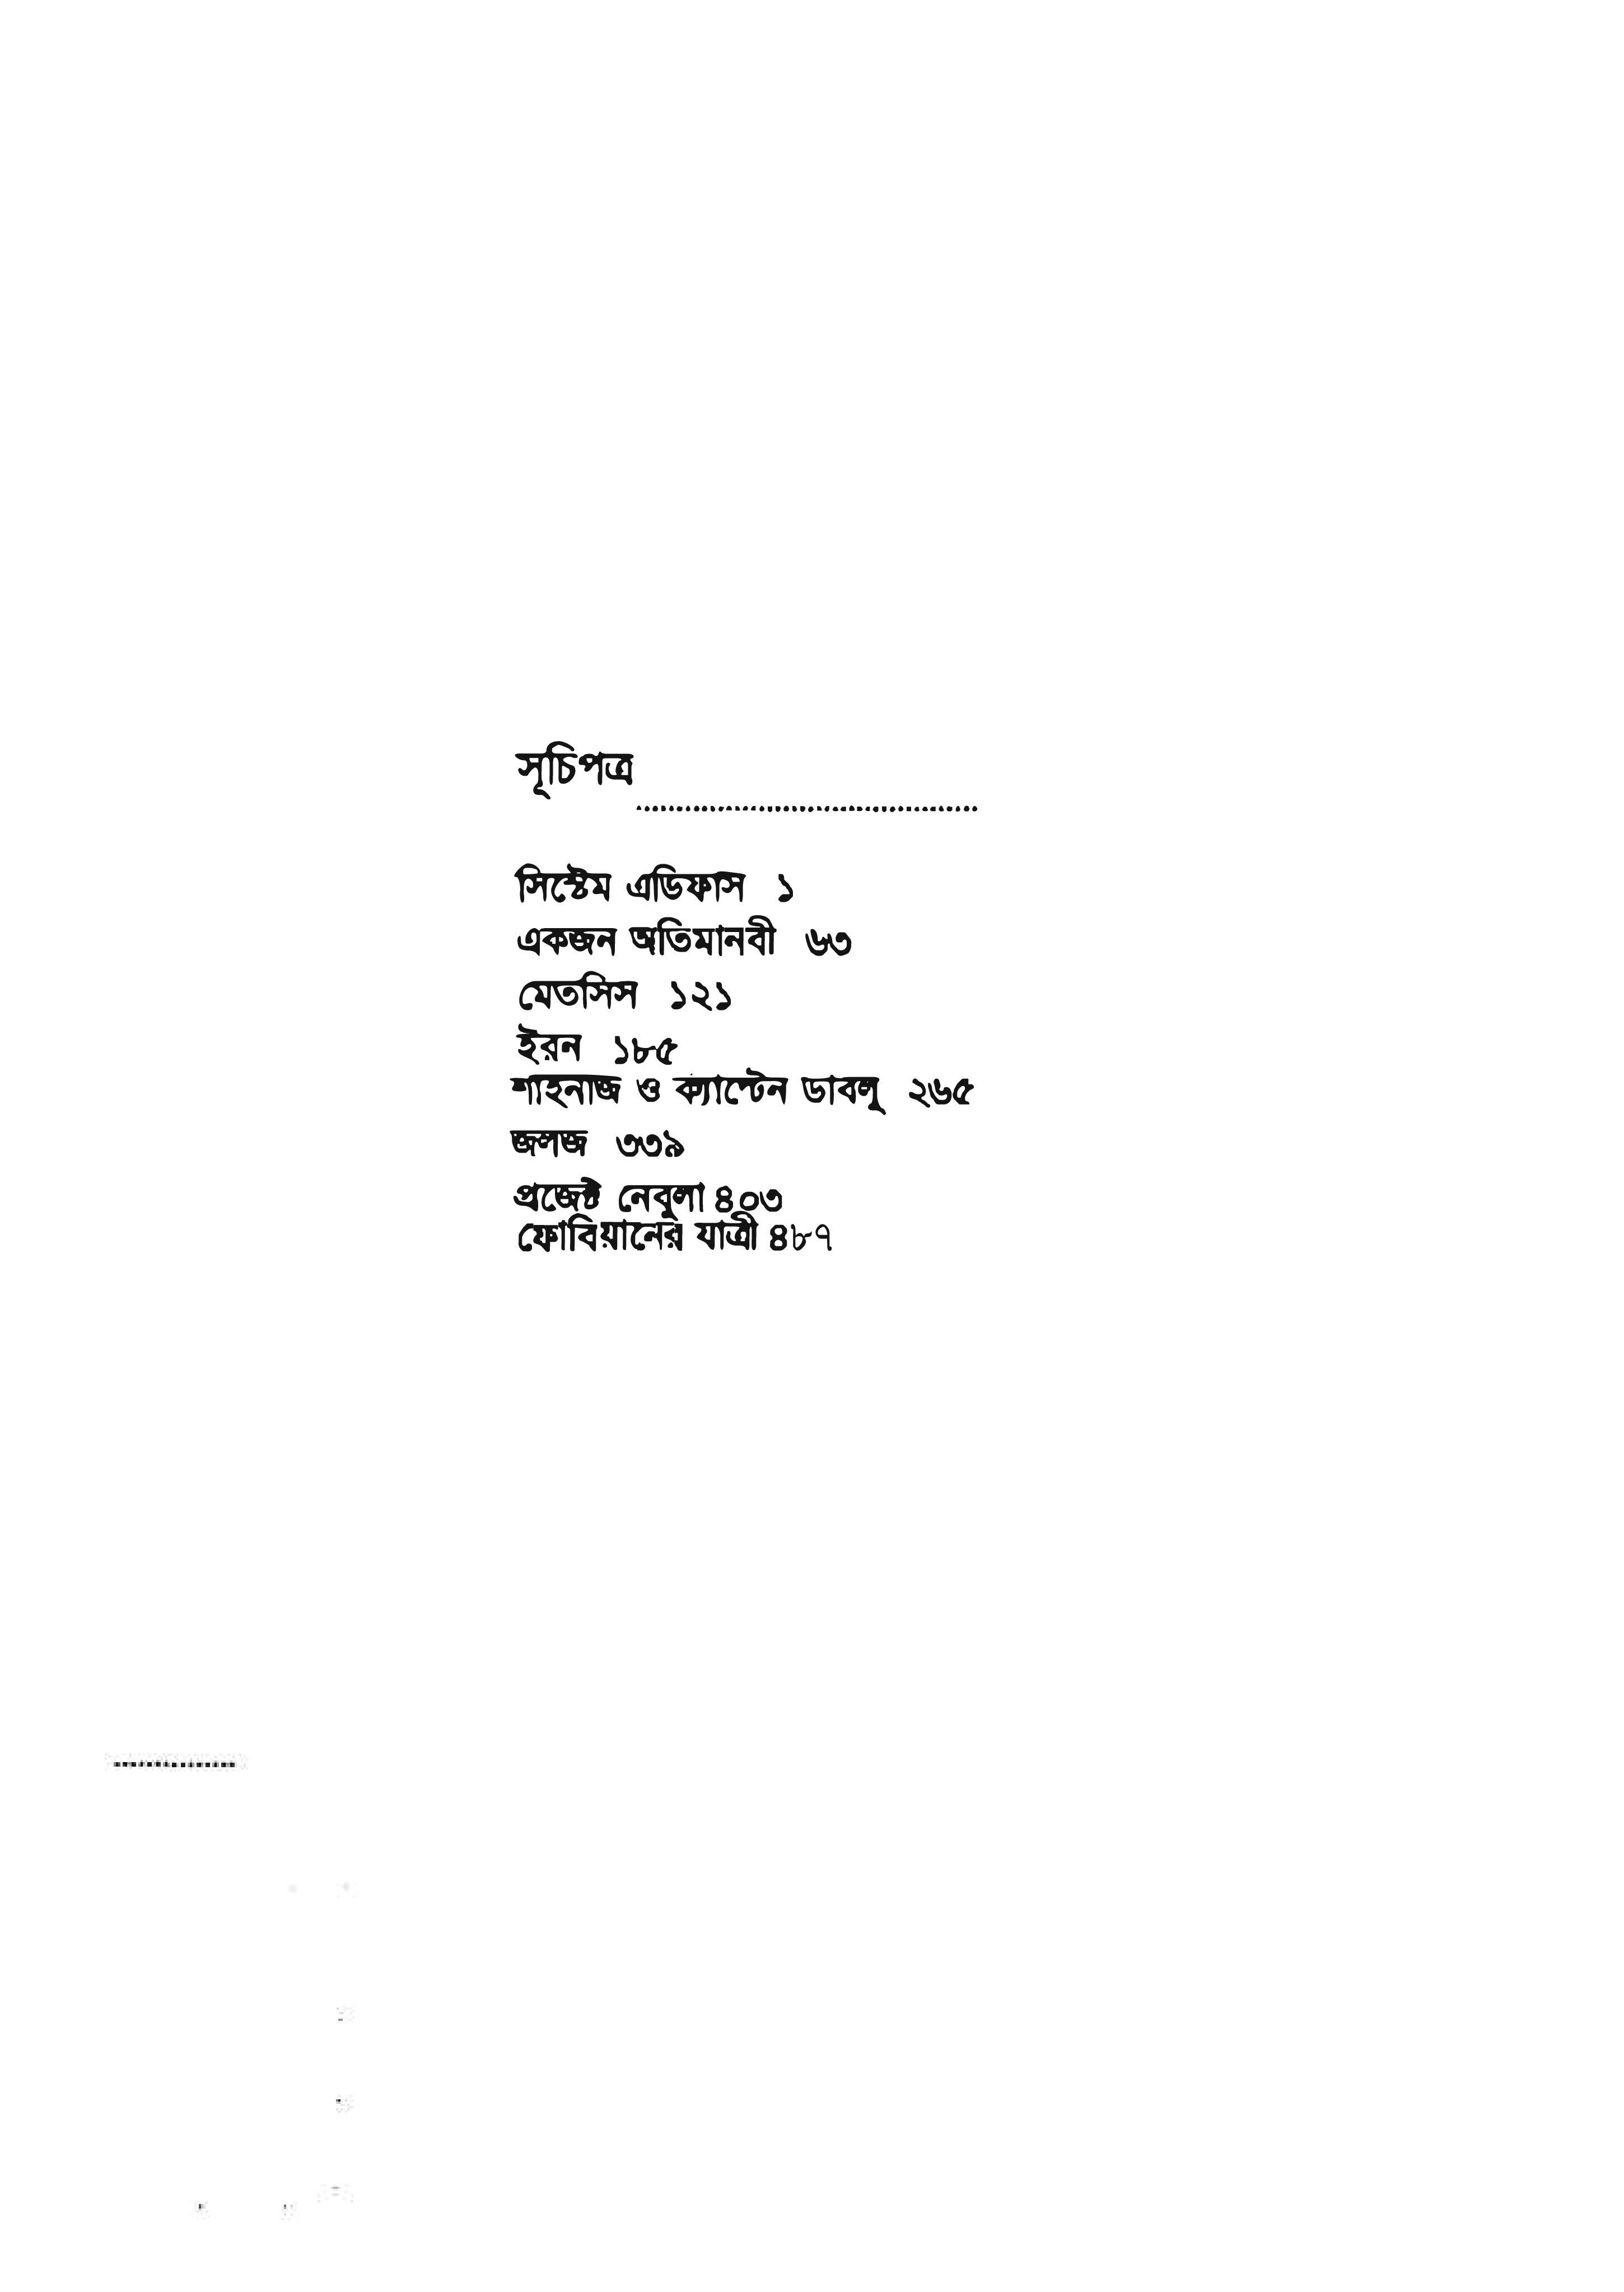 সূচিপত্র
সিস্টেম এডিফাস ১
একজন অতিমানবী ৬৩
মেতসিস ১২১
ইরন ১৮৫
শাহনাজ ও ক্যাপ্টেন ডাবলু ২৬৫
জলজ ৩৩৯
প্রজেক্ট নেবুলা ৪০৩
ফোবিয়ানের যাত্রী ৪৮৭